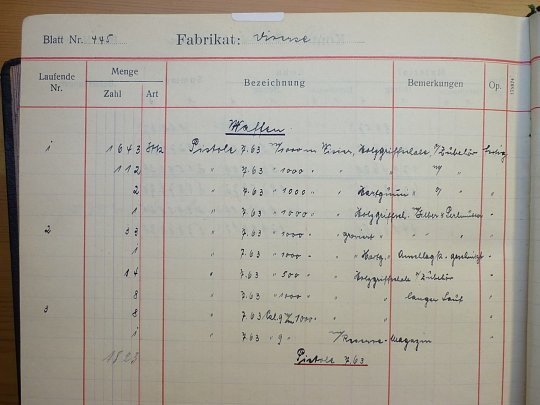 Blatt Nr. 445 Fabrikat: Diverse
Laufende Nr. Menge Zahl Art Bezeichnung Bemerkungen Op.
Waffen.
1 1643 Stk Pistole 7.63 m/1000 m Visier, Holzgriffschale, m/Zubehör
112 " 7.63 " 1000 " " " "/
2 " 7.63 " 1000 " " Hartgummi " "/
1 " 7.63 " 1000 " " Holzgriffsch. m/Silber & Perlmutter
2 33 " 7.63 " 1000 " graviert " "
1 " 7.63 " 1000 " " Hartg. " Anschlag k. geschnitzt
14 " 7.63 " 500 " " Holzgriffschale m/Zubehör
8 " 7.63 " 1000 " " " langer Lauf
3 8 " 7.63 Cal. 9 m/1000 "
1 " 7.63 " 9 " m/Reserve-Magazin
1823 Pistole 7.63